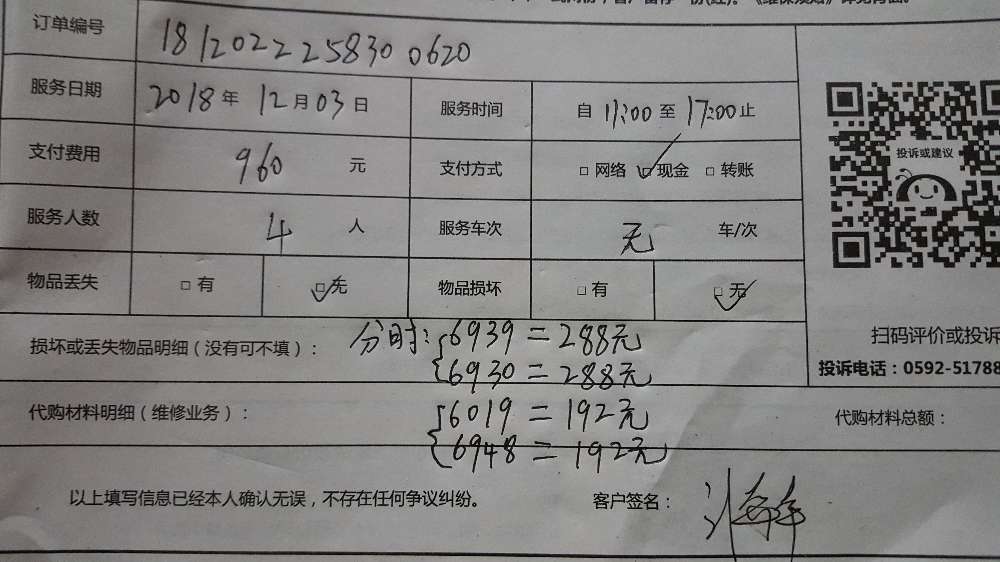 订单编号 181202225830 0620
服务日期 2018年 12月03日 服务时间 自 11:00 至 17:00 止
支付费用 960 元 支付方式 □网络 □现金 □转账
投诉或建议
服务人数 4 人 服务车次 无 车/次
物品丢失 □有 □无 物品损坏 □有 □无
扫码评价或投诉
分时: 6939=288元
损坏或丢失物品明细（没有可不填）：
6930=288元
投诉电话：0592-51788
代购材料明细（维修业务）： 6019=192元 代购材料总额：
6948=192元
以上填写信息已经本人确认无误，不存在任何争议纠纷。 客户签名：